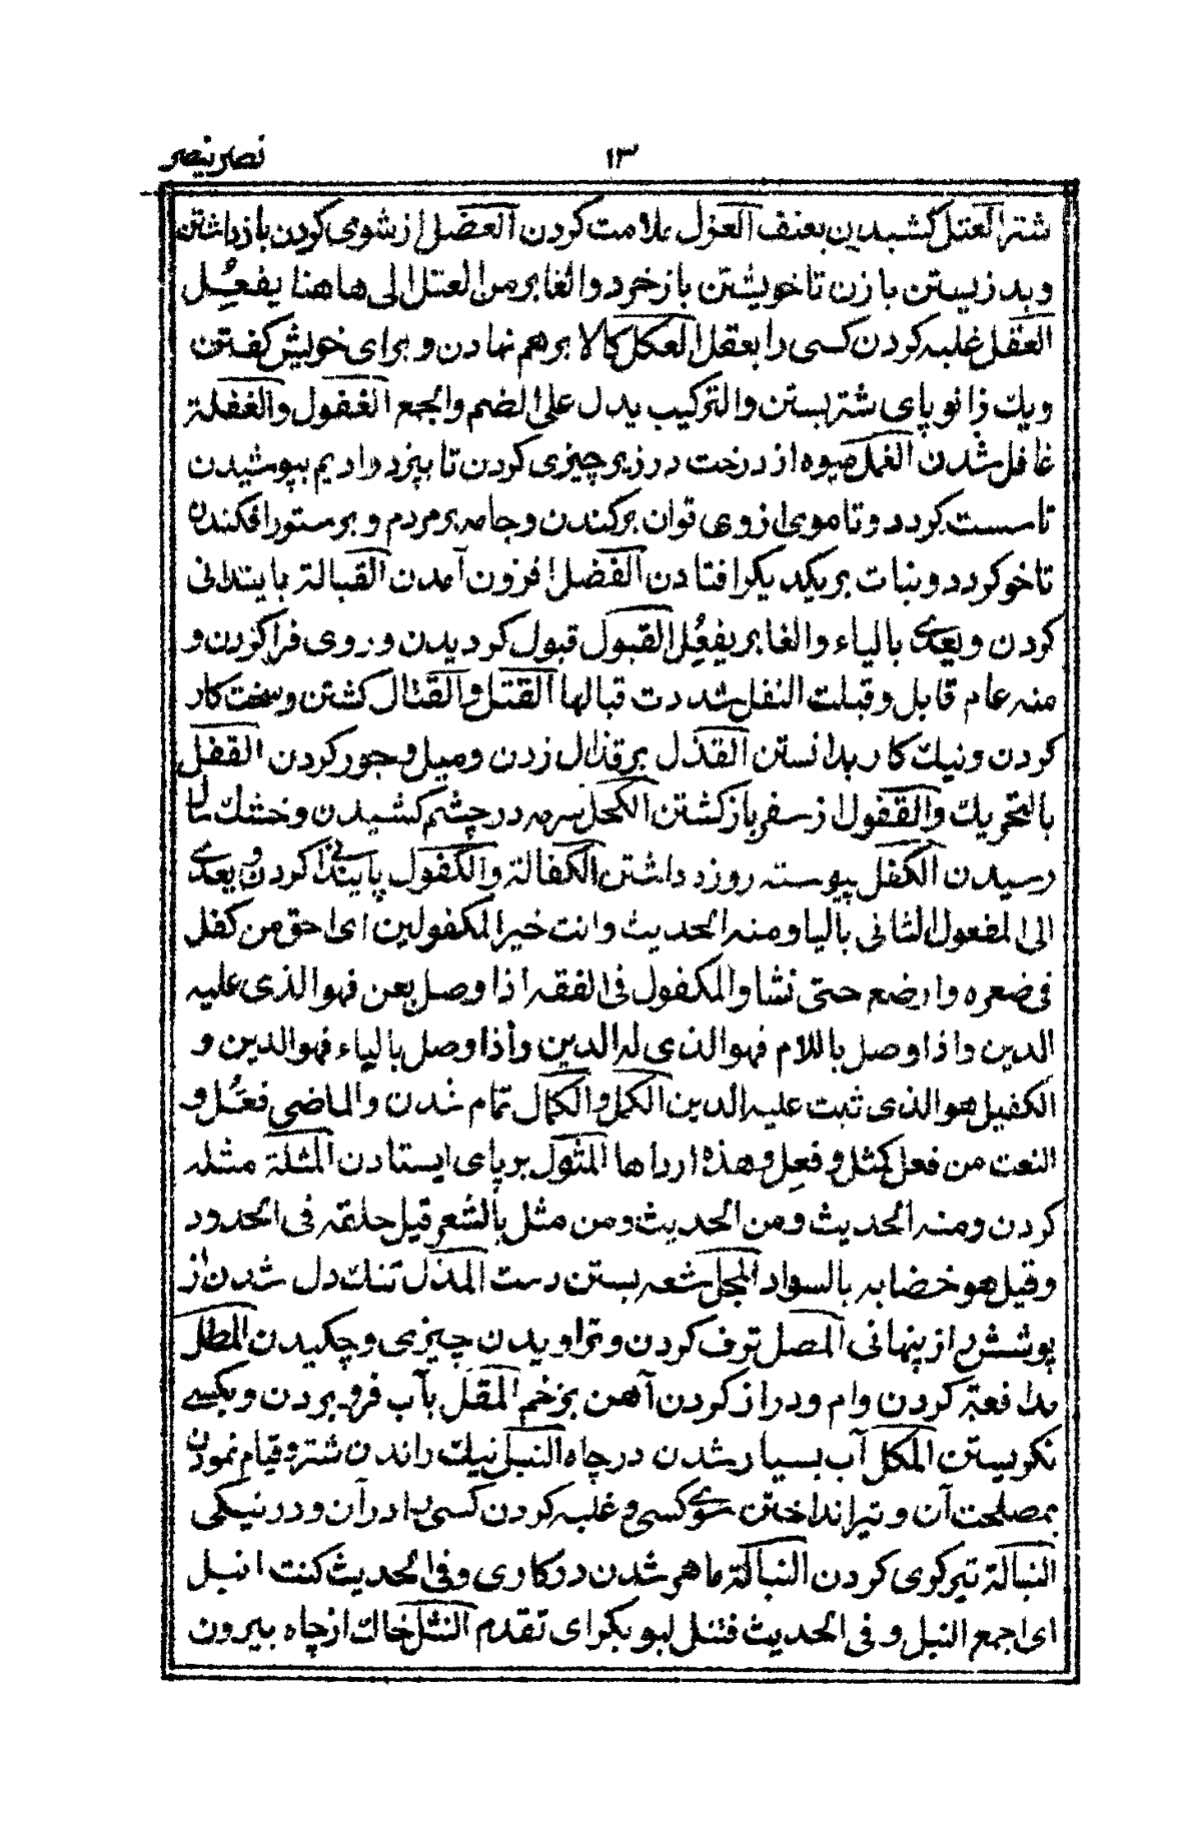 نصر ینصر ١٣
شتر العتل کشیدن بعنف العزل ملامت کردن العضل از شوی کردن بازداشتن
وبد زیستن با زن تا خویشتن باز خرد والغابر من العتل الی هاهنا یفعُِل
العقل غلبه کردن کسی را بعقل العکل کالا برهم نهادن و برای خویش کفتن
ویك زانو پای شتر بستن والترکیب یدل علی الضم والجمع الغفول والغفلة
غافل شدن الغمل میوه از درخت در زیر چیزی کردن تا بپزد وادیم بپوشیدن
تا سست کردد وتا موی از وی توان برکندن وجامه بر مردم و بر ستور افکندن
تا خو کردد ونبات بر یکدیکر افتادن الفضل افزون آمدن القبالة بایتدانی
کردن ویعدی بالیاء والغابر یفعُِل القبول قبول کردیدن و روی فراکردن و
منه عام قابل وقبلت النفل شددت قبالها القتل والقتال کشتن وسخت کار
کردن ونیك کار بدانستن القذل بر قذال زدن ومیل وجور کردن القفل
بالتحریك والقفول از سفر باز کشتن الکحل سرمه در چشم کشیدن وخشك سال
رسیدن الکفل پیوسته روزه داشتن الکفالة والکفول پایندانی کردن ویعدی
الی المفعول الثانی بالیا ومنه الحدیث وانت خیر المکفولین ای احق من کفل
فی ضعره وارضع حتی نشا والمکفول فی الفقه اذا وصل بعن فهو الذی علیه
الدین واذا وصل باللام فهو الذی له الدین وأذا وصل بالیاء فهو الدین و
الکفیل هو الذی ثبت علیه الدین الکمل والکمال تمام شدن والماضی فعُل و
النعت من فعل کمثل و فعِل وهذه ارداها المثول بر پای ایستادن المثلة مثله
کردن ومنه الحدیث ومن الحدیث ومن مثل بالشعر قیل حلقه فی الخدود
وقیل هو خضابه بالسواد المجل شعه بستن دست المذل تنك دل شدن از
پوشش راز پنهانی المصل ترف کردن و تراویدن چیزی وچکیدن المطل
مدافعة کردن وام ودراز کردن آهن بزخم المقل بآب فرو بردن وبکسی
نکریستن المکل آب بسیار شدن در چاه النبل نیك راندن شتر و قیام نمودن
بمصلحت آن و تیر انداختن سوی کسی و غلبه کردن کسی را در آن و در نیکی
النبالة تیرکری کردن النبالة ماهر شدن در کاری وفی الحدیث کنت انبل
ای اجمع النبل و فی الحدیث فتنل ابو بکر ای تقدم النثل خاك از چاه بیرون